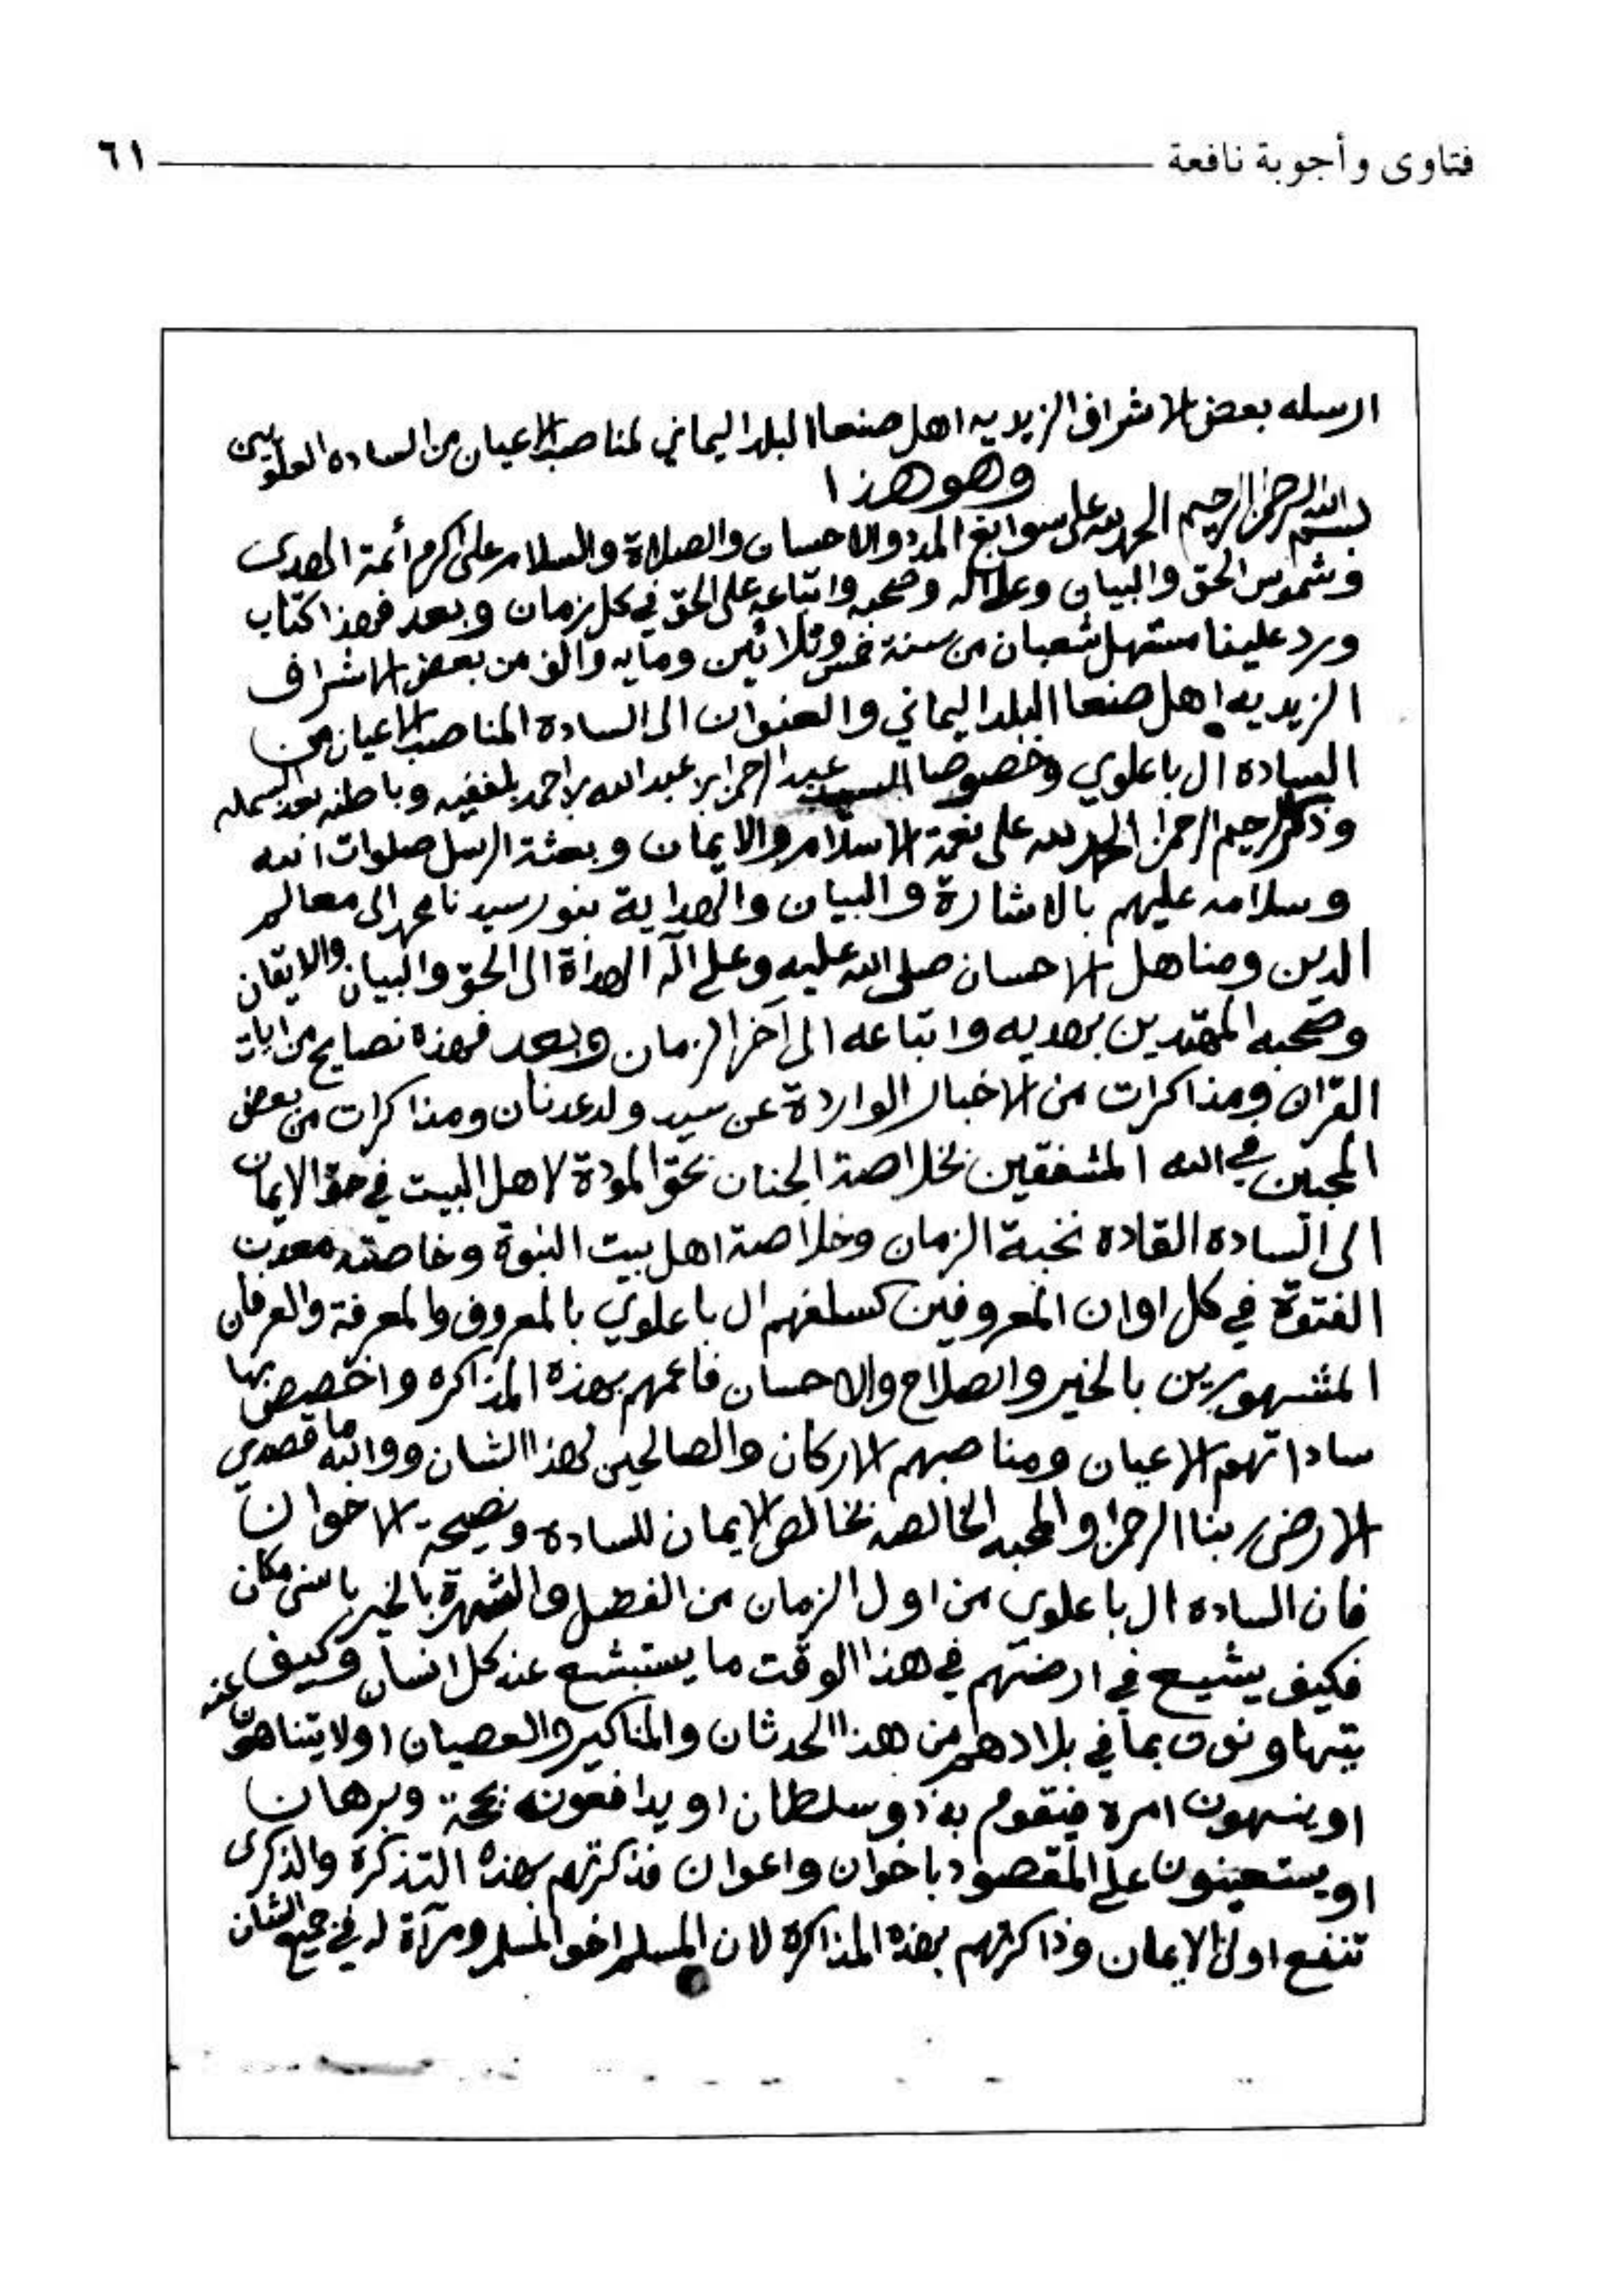 فتاوى وأجوبة نافعة ٦١
ارسله بعض الاشراف الزيديه اهل صنعا البلد اليماني لمناصب الاعيان من الساده العلويين
وهو هذا
بسم الله الرحمن الرحيم الحمد لله على سوابغ المدد والاحسان والصلاة والسلام على اكرم أئمة الهدى
وشموس الحق والبيان وعلى اله وصحبه واتباعه على الحق في كل زمان وبعد فهذا كتاب
ورد علينا مستهل شعبان من سنة خمس وثلاثين ومايه والف من بعض الاشراف
الزيديه اهل صنعا البلد اليماني والعنوان الى الساده المناصب الاعيان من
الساده ال باعلوي وخصوصا السيد عبد الرحمن بن عبد الله بن احمد بلفقيه وباطنه بعد البسمله
وذكر الرحيم الرحمن الحمد لله على نعمة الاسلام والايمان وبعثة الرسل صلوات الله
وسلامه عليهم بالاشارة والبيان والهداية بنور سيدنا محمد الى معالم
الدين ومناهل الاحسان صلى الله عليه وعلى آله الهداة الى الحق والبيان والايقان
وصحبه المهتدين بهديه واتباعه الى آخر الزمان وبعد فهذه نصايح من ايات
القران ومذاكرات من الاخبار الواردة عن سيد ولد عدنان ومذاكرات من بعض
المحبين في الله المشفقين بخلاصة الجنان بحق المودة لاهل البيت في حق الايمان
الى السادة القادة نخبة الزمان وخلاصة اهل بيت النبوة وخاصته معدن
الفتوة في كل اوان المعروفين كسلفهم ال باعلوي بالمعروف والمعرفة والعرفان
المشهورين بالخير والصلاح والاحسان فاعمهم بهذه المذاكره واخصص بها
ساداتهم الاعيان ومناصبهم الاركان والصالحين لهذا الشان ووالله ما قصدي
الارضى ربنا الرحمن والمحبه الخالصه بخالص الايمان للسادة ونصيحة الاخوان
فان الساده ال باعلوي من اول الزمان من الفضل والشهرة بالخير باسنى مكان
فكيف يشيع في ارضهم في هذا الوقت ما يستبشع عند كل انسان وكيف
يتهاونون بما في بلادهم من هذا الحدثان والمناكير والعصيان اولا يتناهون عنه
او ينهون امره فيقوم به ذو سلطان او يدافعونه بحجة وبرهان
او يستعينون على المقصود باخوان واعوان فذكرتهم بهذه التذكرة والذكرى
تنفع اولى الايمان وذاكرتهم بهذه المذاكرة لان المسلم اخو المسلم ومرآة له في جميع الشان